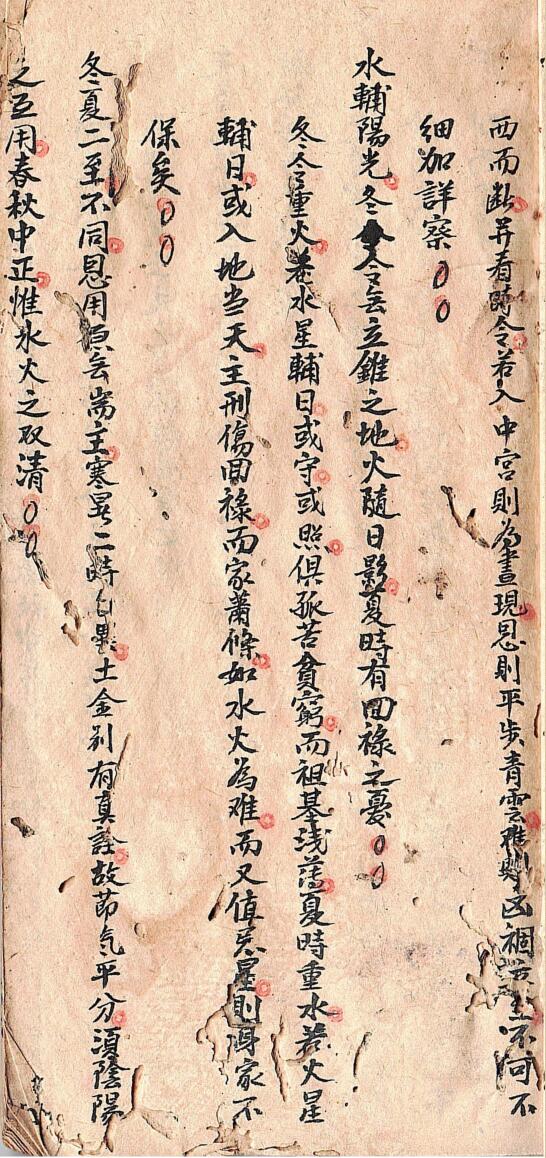 西而断并看時令若入中宮則為晝現恩則平步青雲难則凶禍不可不
细加詳察
水輔陽光冬令無立錐之地火隨日影夏時有回祿之憂
冬令重火若水星輔日或守或照俱孤苦貧窮而祖基浅薄夏時重水若火星
輔日或入地当天主刑傷回祿而家蕭條如水火為难而又值忌星則身家不
保矣
冬夏二至不同恩用原無耑主寒暑二時土金别有真詮故節气平分須陰陽
之互用春秋中正惟水火之取清